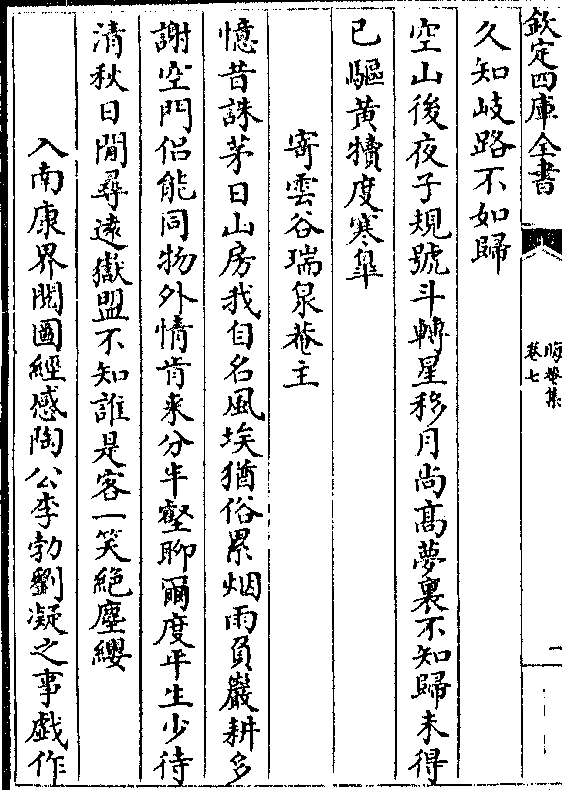 欽定四庫全書
晦菴集
卷七
一
久知岐路不如歸
空山後夜子規號斗轉星移月尚髙夢裏不知歸未得
已驅黃犢度寒臯
寄雲谷瑞泉菴主
憶昔誅茅日山房我自名風埃猶俗累烟雨負巖耕多
謝空門侣能同物外情肯来分半壑聊爾度平生少待
清秋日閒尋遠嶽盟不知誰是客一笑絶塵纓
入南康界閱圖經感陶公李勃劉凝之事戯作